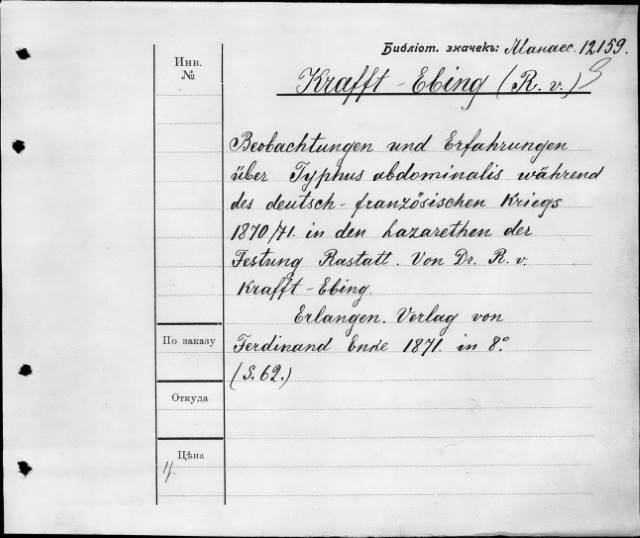 Библіот. значекъ: Манасс. 12159.
Инв.
№
Krafft-Ebing (R. v.)
Beobachtungen und Erfahrungen
über Typhus abdominalis während
des deutsch-französischen Kriegs
1870/71. in den Lazarethen der
Festung Rastatt. Von Dr. R. v.
Krafft-Ebing.
Erlangen. Verlag von
По заказу
Ferdinand Enke 1871. in 8°.
(S. 62.)
Откуда
Цѣна